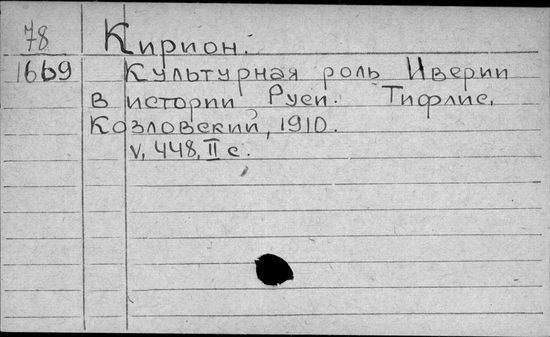 78 Кирион.
1669 Культурная роль Иверии
в истории Руси. Тифлис,
Козловский, 1910.
V, 448, II с.